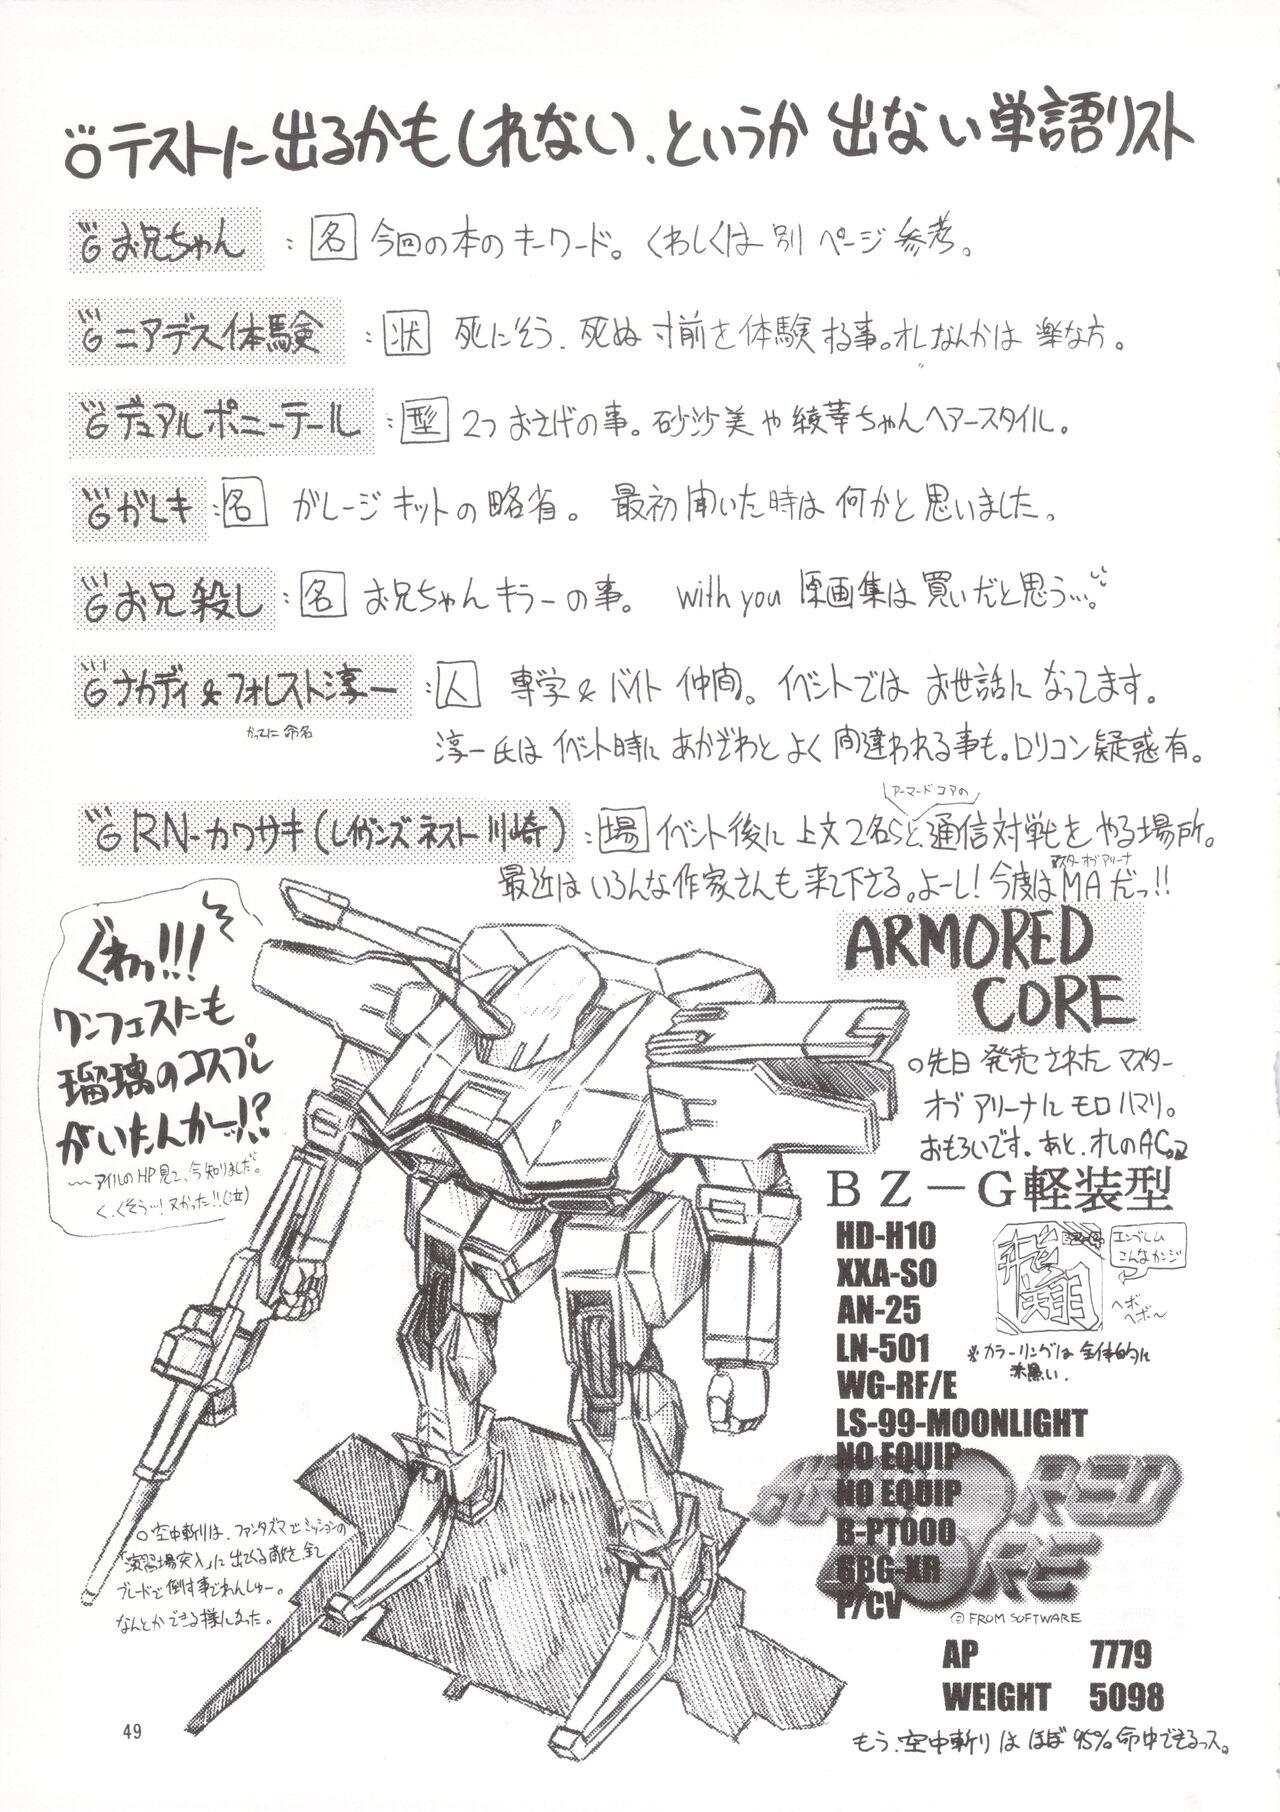 テストに出るかもしれない、というか 出ない単語リスト
お兄ちゃん : 名 今回の本のキーワード。くわしくは 別ページ参考。
ニアデス体験 : 状 死にそう、死ぬ寸前を体験する事。オレなんかは 楽な方。
デュアルポニーテール : 型 2つおさげの事。砂沙美や綾華ちゃんヘアースタイル。
がレキ : 名 ガレージキットの略省。 最初聞いた時は何かと思いました。
お兄殺し : 名 お兄ちゃんキラーの事。 with you 原画集は買いだと思う…。
ナカディ&フォレスト淳一 : 人 専学&バイト仲間。イベントではお世話になってます。
かってに命名
淳一氏はイベント時にあかざわとよく間違われる事も。ロリコン疑惑有。
アーマードコアの
RN-カワサキ(レイヴンズネスト川崎) : 場 イベント後に上文2名らと、通信対戦をやる場所。
マスターオブアリーナ
最近はいろんな作家さんも来て下さる。よーし!今度はMAだっ!!
ぐわっ!!!
ワンフェスにも
瑠璃のコスプレ
がいたんかーッ!?
〜アイルのHP見て、今知りました。
く、くそぅ…!ヌかった!!(泣)
ARMORED
CORE
○先日発売されたマスター
オブアリーナにモロハマり。
おもろいです。あと、オレのAC。
BZ-G軽装型
HD-H10
XXA-S0
AN-25
LN-501
WG-RF/E
LS-99-MOONLIGHT
NO EQUIP
NO EQUIP
B-PT000
GBG-XR
P/CV
飛翔
エンブレム
こんなカンジ
ヘボン
ヘボ〜
※カラーリングは全体的に
赤黒い.
ARMORED
CORE
© FROM SOFTWARE
AP 7779
WEIGHT 5098
もう、空中斬りはほぼ95%命中できるっス。
○空中斬りは、ファンタズマでミッションの
「演習場突入」に出てくる敵を、全て
ブレードで倒す事でれんしゅー。
なんとかできる様になった。
49